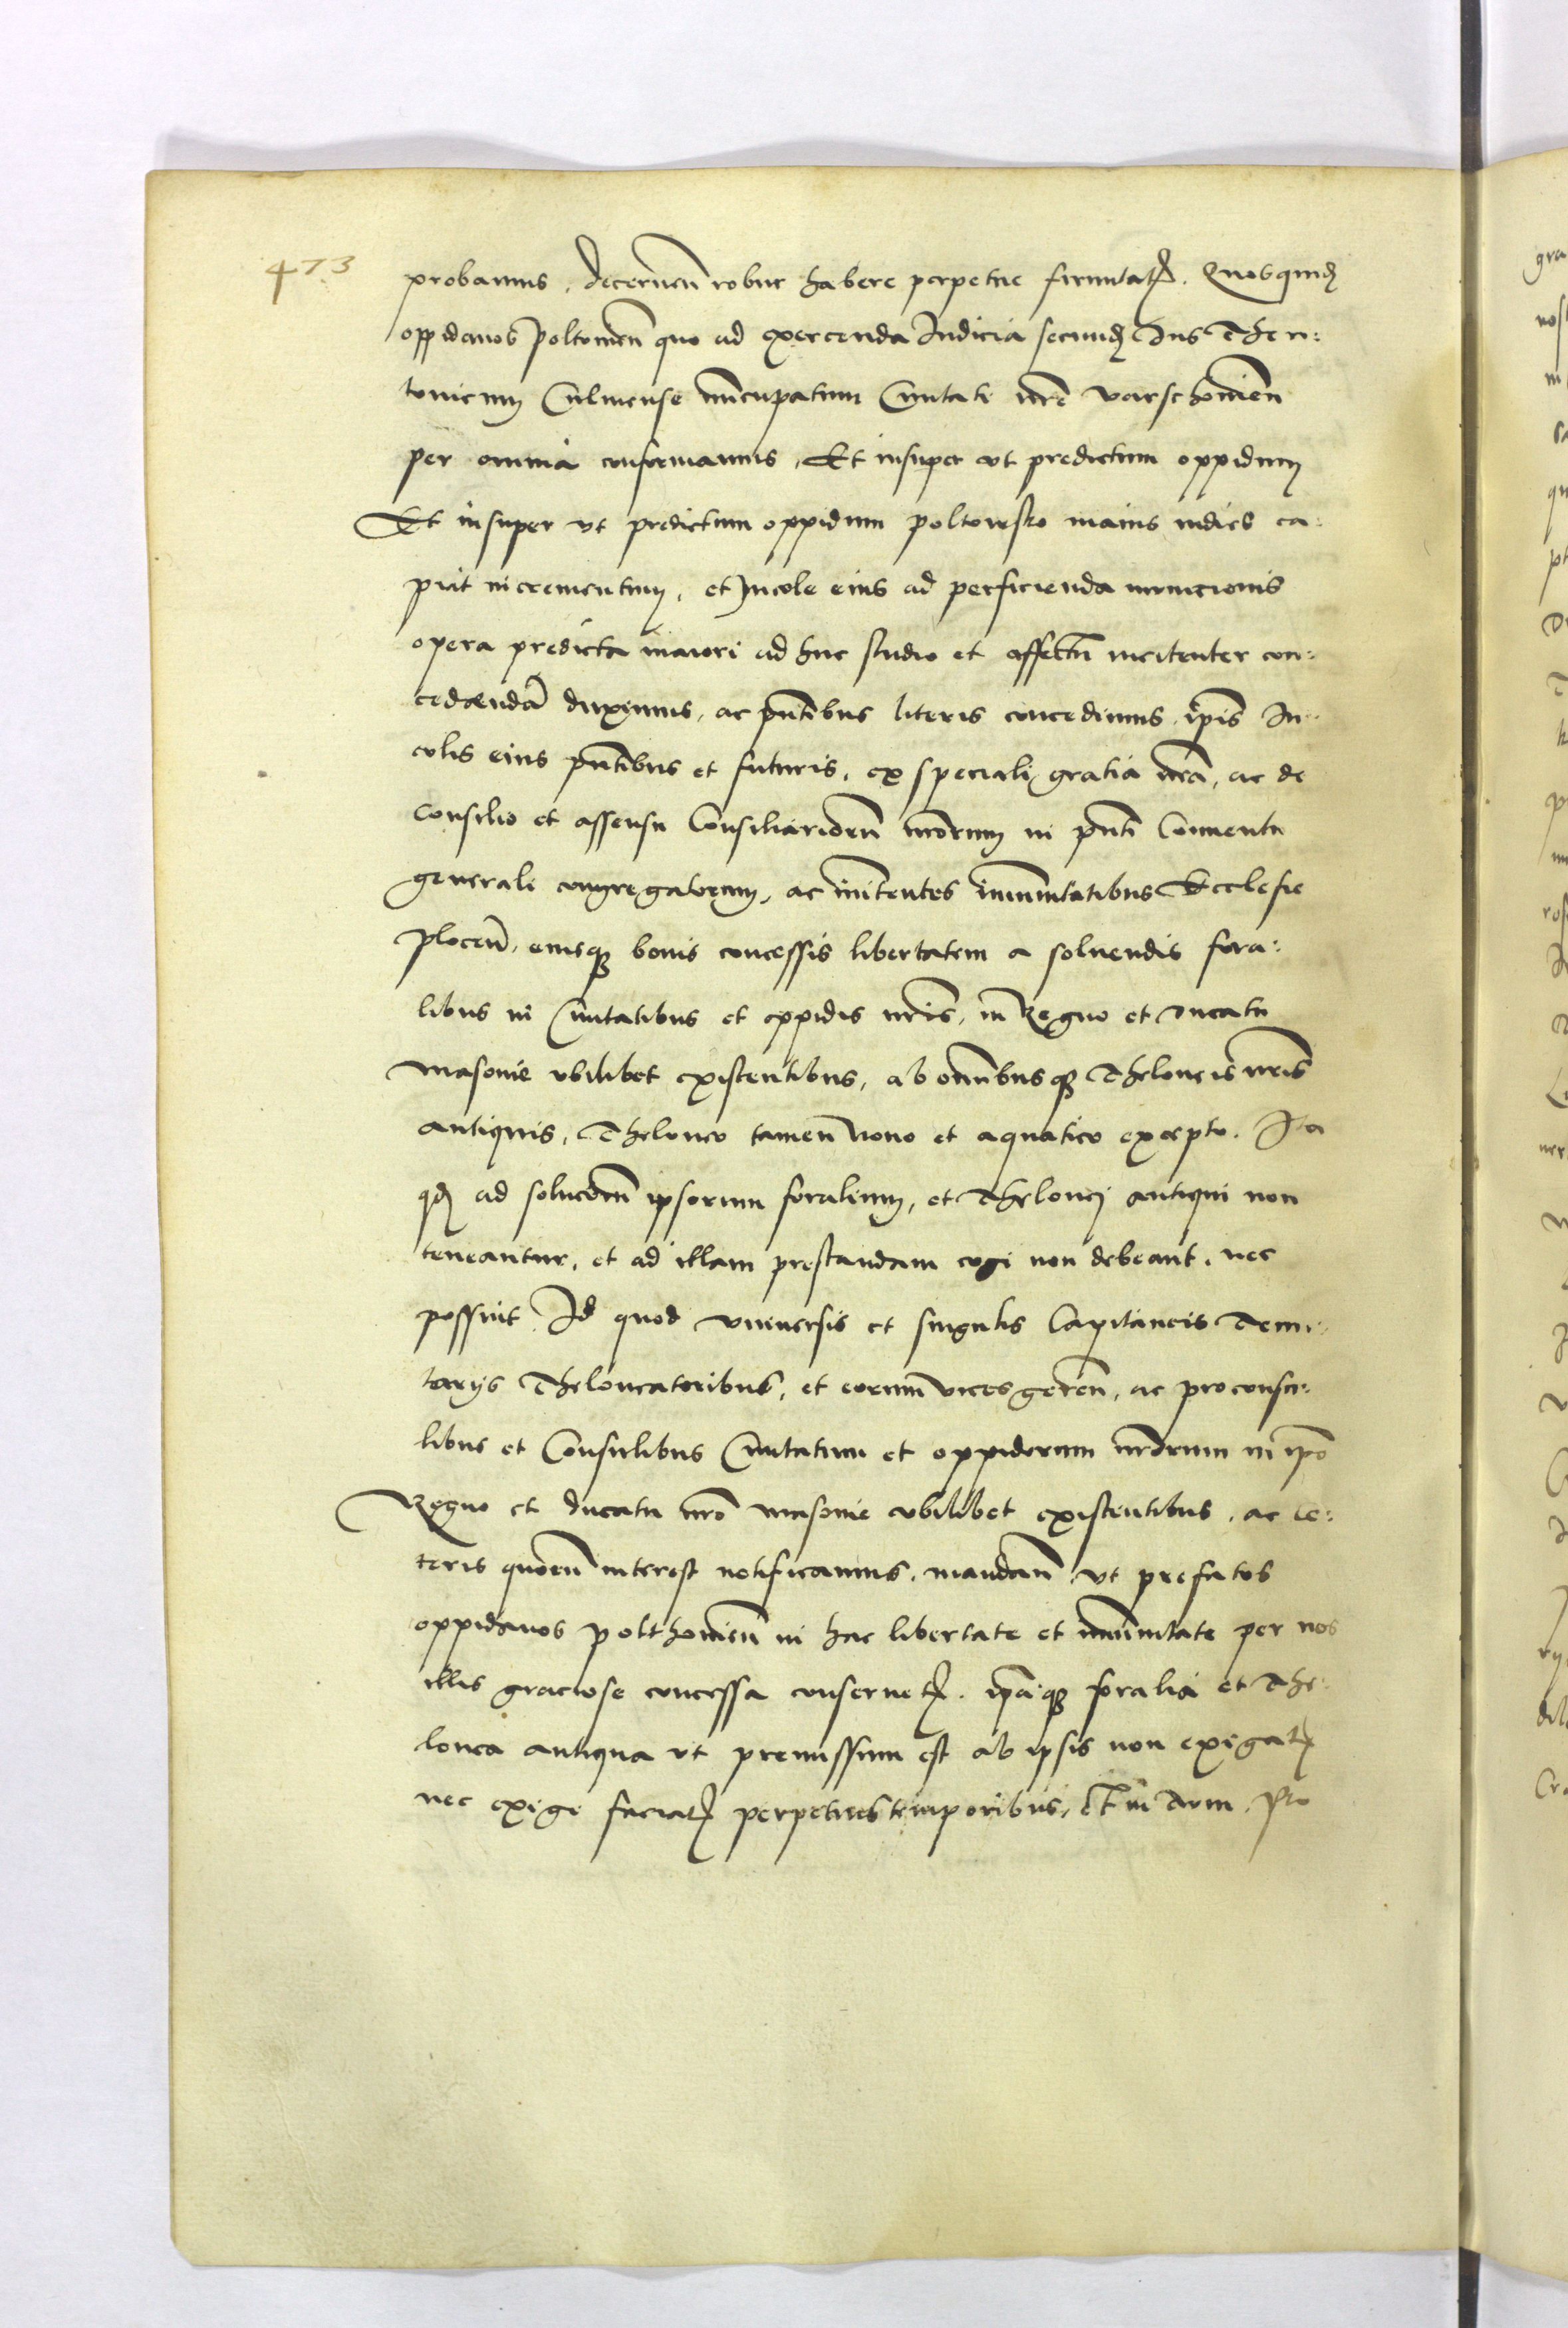 473
probamus, decernen̄ robur habere perpetue firmitatꝭ. Quosquidꝫ
oppidanos Poltouien̄ quo ad exercenda Iudicia secundꝫ Ius Theu:
tonicum Culmense nūcupatum Ciuitati nr̄e Varschouien̄
per omnia conformamus, Et insuper vt predictum oppidum
Et insuper vt predictum oppidum poltowsko maius indies ca:
piat incrementum, et Incole eius ad perficienda municionis
opera predicta maiori ad huc studio et affectu incitenter con:
cedendā duximus, ac pn̄tibus literis concedimus, ip̄is In:
colis eius pn̄tibus et futuris, ex speciali gratia nr̄a, ac de
consilio et assensu Consiliarioru̅ nr̄orum in pn̄ti Conuentu
generali congregatorum, ac initentes immunitatibus Ecclesie
plocen̄, eiusqꝫ bonis concessis libertatem a soluendis fora:
libus in Ciuitatibus et oppidis nr̄is, in Regno et ducatu
Masouie vbilibet existentibus, ab omnibusqꝫ Theloneis nr̄is
antiquis, Theloneo tamen nouo et aquatico excepto. Ita
qdꝫ ad soluc̄oem ipsorum foralium, et Thelonej antiqui non
teneantur, et ad illam prestandam cogi non debeant, nec
possint Id quod vniuersis et singulis Capitaneis Tenu:
tarijs Theloneatoribus, et eorum vicesgeren̄, ac proconsu:
libus et Consulibus Ciuitatum et oppidorum nr̄orum in ip̄o
Regno et ducatu nr̄o Masouie vbilibet existentibus, ac ce:
teris quoru̅ interest notificamus, mandan̄, vt prefatos
oppidanos polthouien̄ in hac libertate et immunitate per nos
illis graciose concessa conseruetꝭ. ip̄aqꝫ foralia et The:
lonea antiqua vt premissum est ab ipsis non exigatꝭ
nec exigi faciatꝭ perpetuis temporibus, Et in euum. Pro